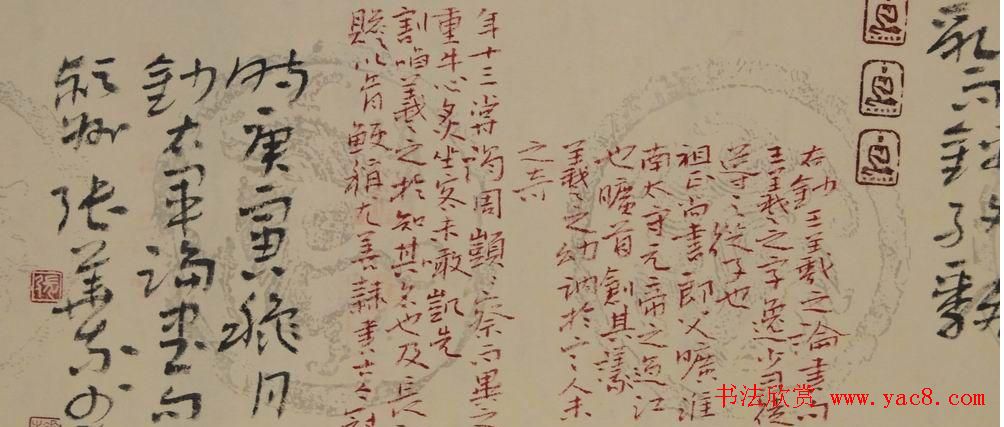 右鈔王羲之論書句
王羲之字逸少司徒
導之從子也
祖正尚書郎父曠淮
南太守元帝之過江
也曠首創其議
羲之幼訥於言人未
之奇
年十三嘗謁周顗顗察而異之
重牛心炙坐客未噉凱先
割啗羲之於知其名也及長
贍以骨鯁稱尤善隸書
時庚寅穐月
鈔右軍論書句
張華
书法欣赏 www.yac8.com